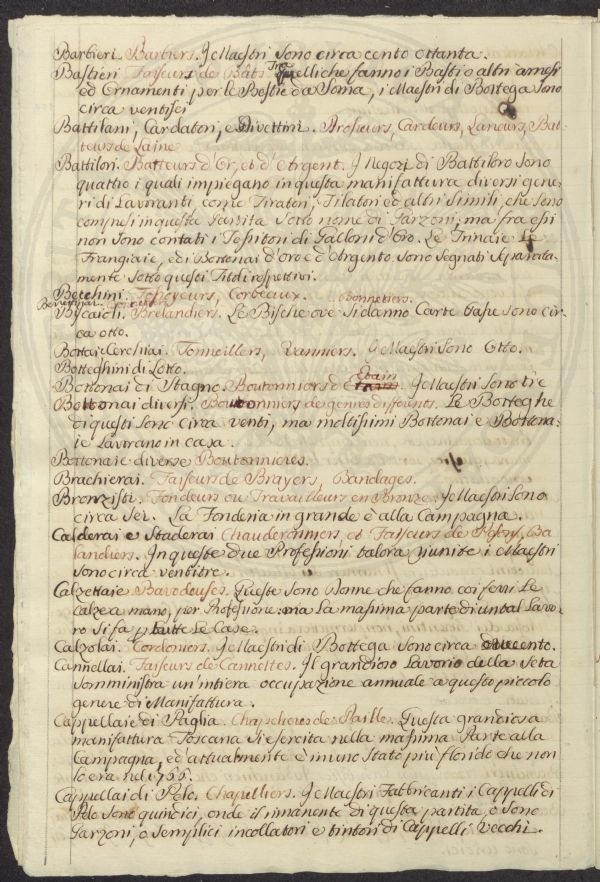 Barbieri. Barbiers. I Maestri sono circa cento ottanta.
Bastieri Faiseurs de Bâts. Quelli che fanno i Basti o altri arnesi
ed Ornamenti per le Bestie da Soma, i Maestri di Bottega sono
circa ventisei
Battilani, Cardatori, e Divettini. Arçoneurs, Cardeurs, Laneurs, Bat-
teurs de Laine
Battilori. Batteurs d'Or, et d'Argent. I Negozi di Battiloro sono
quattro i quali impiegano in questa manifattura diversi gene-
ri di Lavoranti, come Tiratori, Filatori ed altri simili, che sono
compresi in questa partita sotto nome di Garzoni; ma fra essi
non sono contati i Tessitori di Galloni d'Oro. Le Trinaie Le
Frangiaie, ed i Bottonai d'oro e d'Argento sono segnati separata-
mente sotto questi Titoli respettivi.
Becchini. Fossoyeurs, Corbeaux.
Berrettinai. Bonnetiers.
Biscaioli. Brelandiers. Le Bische ove si danno Carte basse sono cir-
ca otto.
Bottai e Cerchiai. Tonneillers, Vanniers. I Maestri sono Otto.
Botteghini di Lotto.
Bottonai di Stagno Boutonniers d'Etain. I Maestri sono tre
Bottonai diversi. Boutonniers de genres differents. Le Botteghe
di questi sono circa venti, ma moltissimi Bottonai e Bottona-
ie Lavorano in casa.
Bottonaie diverse Boutonnieres.
Brachierai. Faiseurs de Brayers, Bandages.
Bronzisti. Fondeurs ou Travailleurs en Bronze. I Maestri sono
circa sei. La Fonderia in grande è alla Campagna.
Calderai e Staderai Chauderonniers, et Faiseurs de Pesons, Ba
landiers. In queste due Professioni talora riunite i Maestri
sono circa ventitre.
Calzettaie Ravodeuses. Queste sono Donne che fanno coi ferri Le
Calze a mano, per Professione: ma La massima parte di un tal Lavo-
ro si fa p tutte Le Case.
Calzolai. Cordoniers. I Maestri di Bottega sono circa duecento.
Cannellai. Faiseurs de Cannettes. Il grandioso Lavorio della Seta
somministra un'intiera occupazione annuale a questo piccolo
genere di Manifattura.
Cappellaie di Paglia. Chapelieres de Paille. Questa grandiosa
manifattura Toscana si esercita nella massima Parte alla
Campagna, ed attualmente è in uno stato più florido che non
lo era nel 1766.
Cappellai di Pelo. Chapelliers. I Maestri Fabbricanti i Cappelli di
Pelo sono quindici, onde il rimanente di questa partita, o sono
Garzoni, o semplici incollatori e tintori di Cappelli Vecchi.